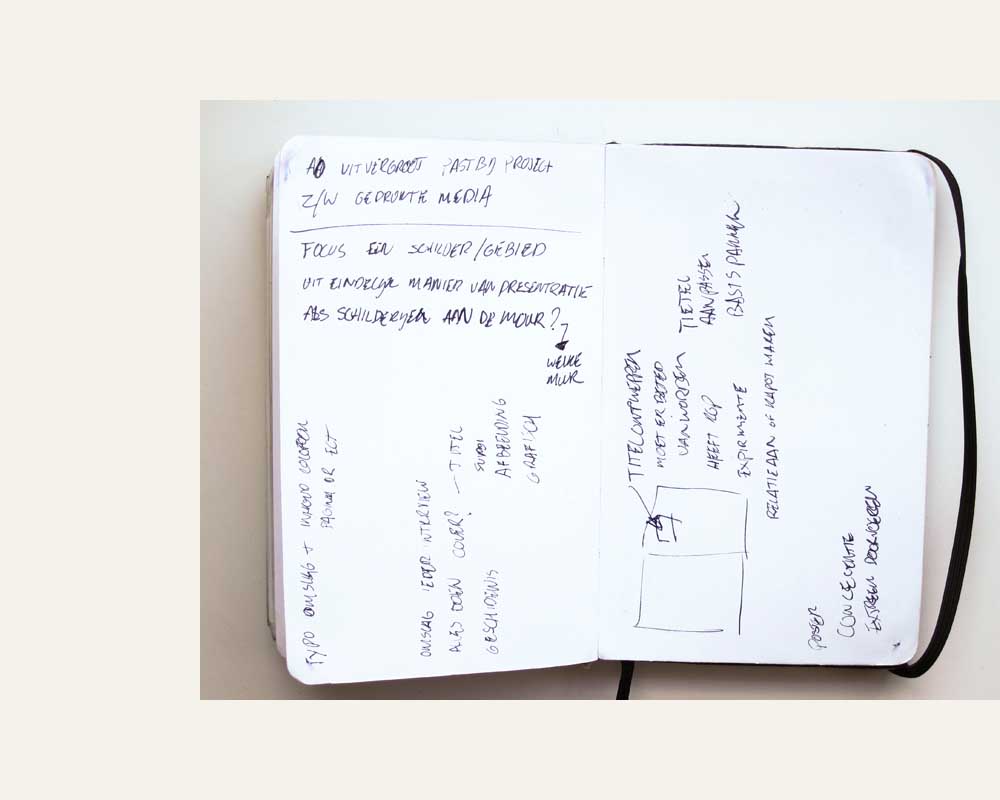 A0 UITVERGROOT PAST BIJ PROJECT
Z/W GEDRUKTE MEDIA
FOCUS EEN SCHILDER/GEBIED
UITEINDELIJK MANIER VAN PRESENTRATIE
ALS SCHILDERIJEN AAN DE MUUR?
WELKE
MUUR
TYPO OMSLAG + INHOUD COLOFON
PAGINA OR ECT
OMSLAG IEDER INTERVIEW
ALLES DOEN COVER? — TITEL
SUBTI
AFBEELDING
GRAFISCH
GESCHIDENIS
TITELONTWERPEN
MOET ER BETER
VAN WORDEN
HEEFT
EXPIRIMENTE
TIETEL
AANPASSEN
BASIS PAKKEN
RELATIE AAN OF KAPOT MAKEN
POSTER
CONCEQUENTE
EXTREEM DOORVOEREN